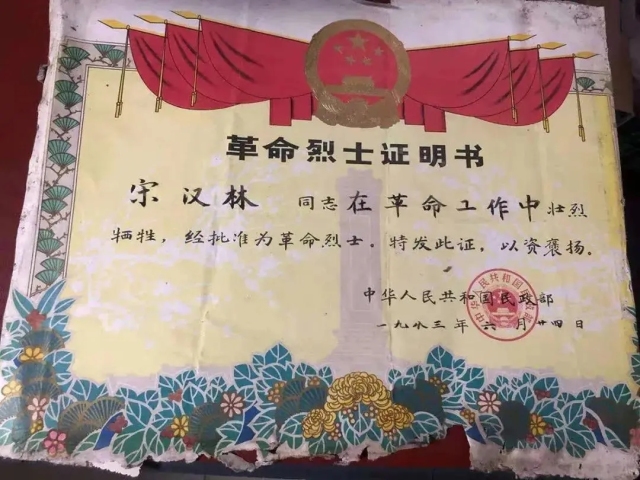 革命烈士证明书
宋汉林 同志在革命工作中壮烈
牺牲，经批准为革命烈士。特发此证，以资褒扬。
中华人民共和国民政部
一九八三年六月廿四日